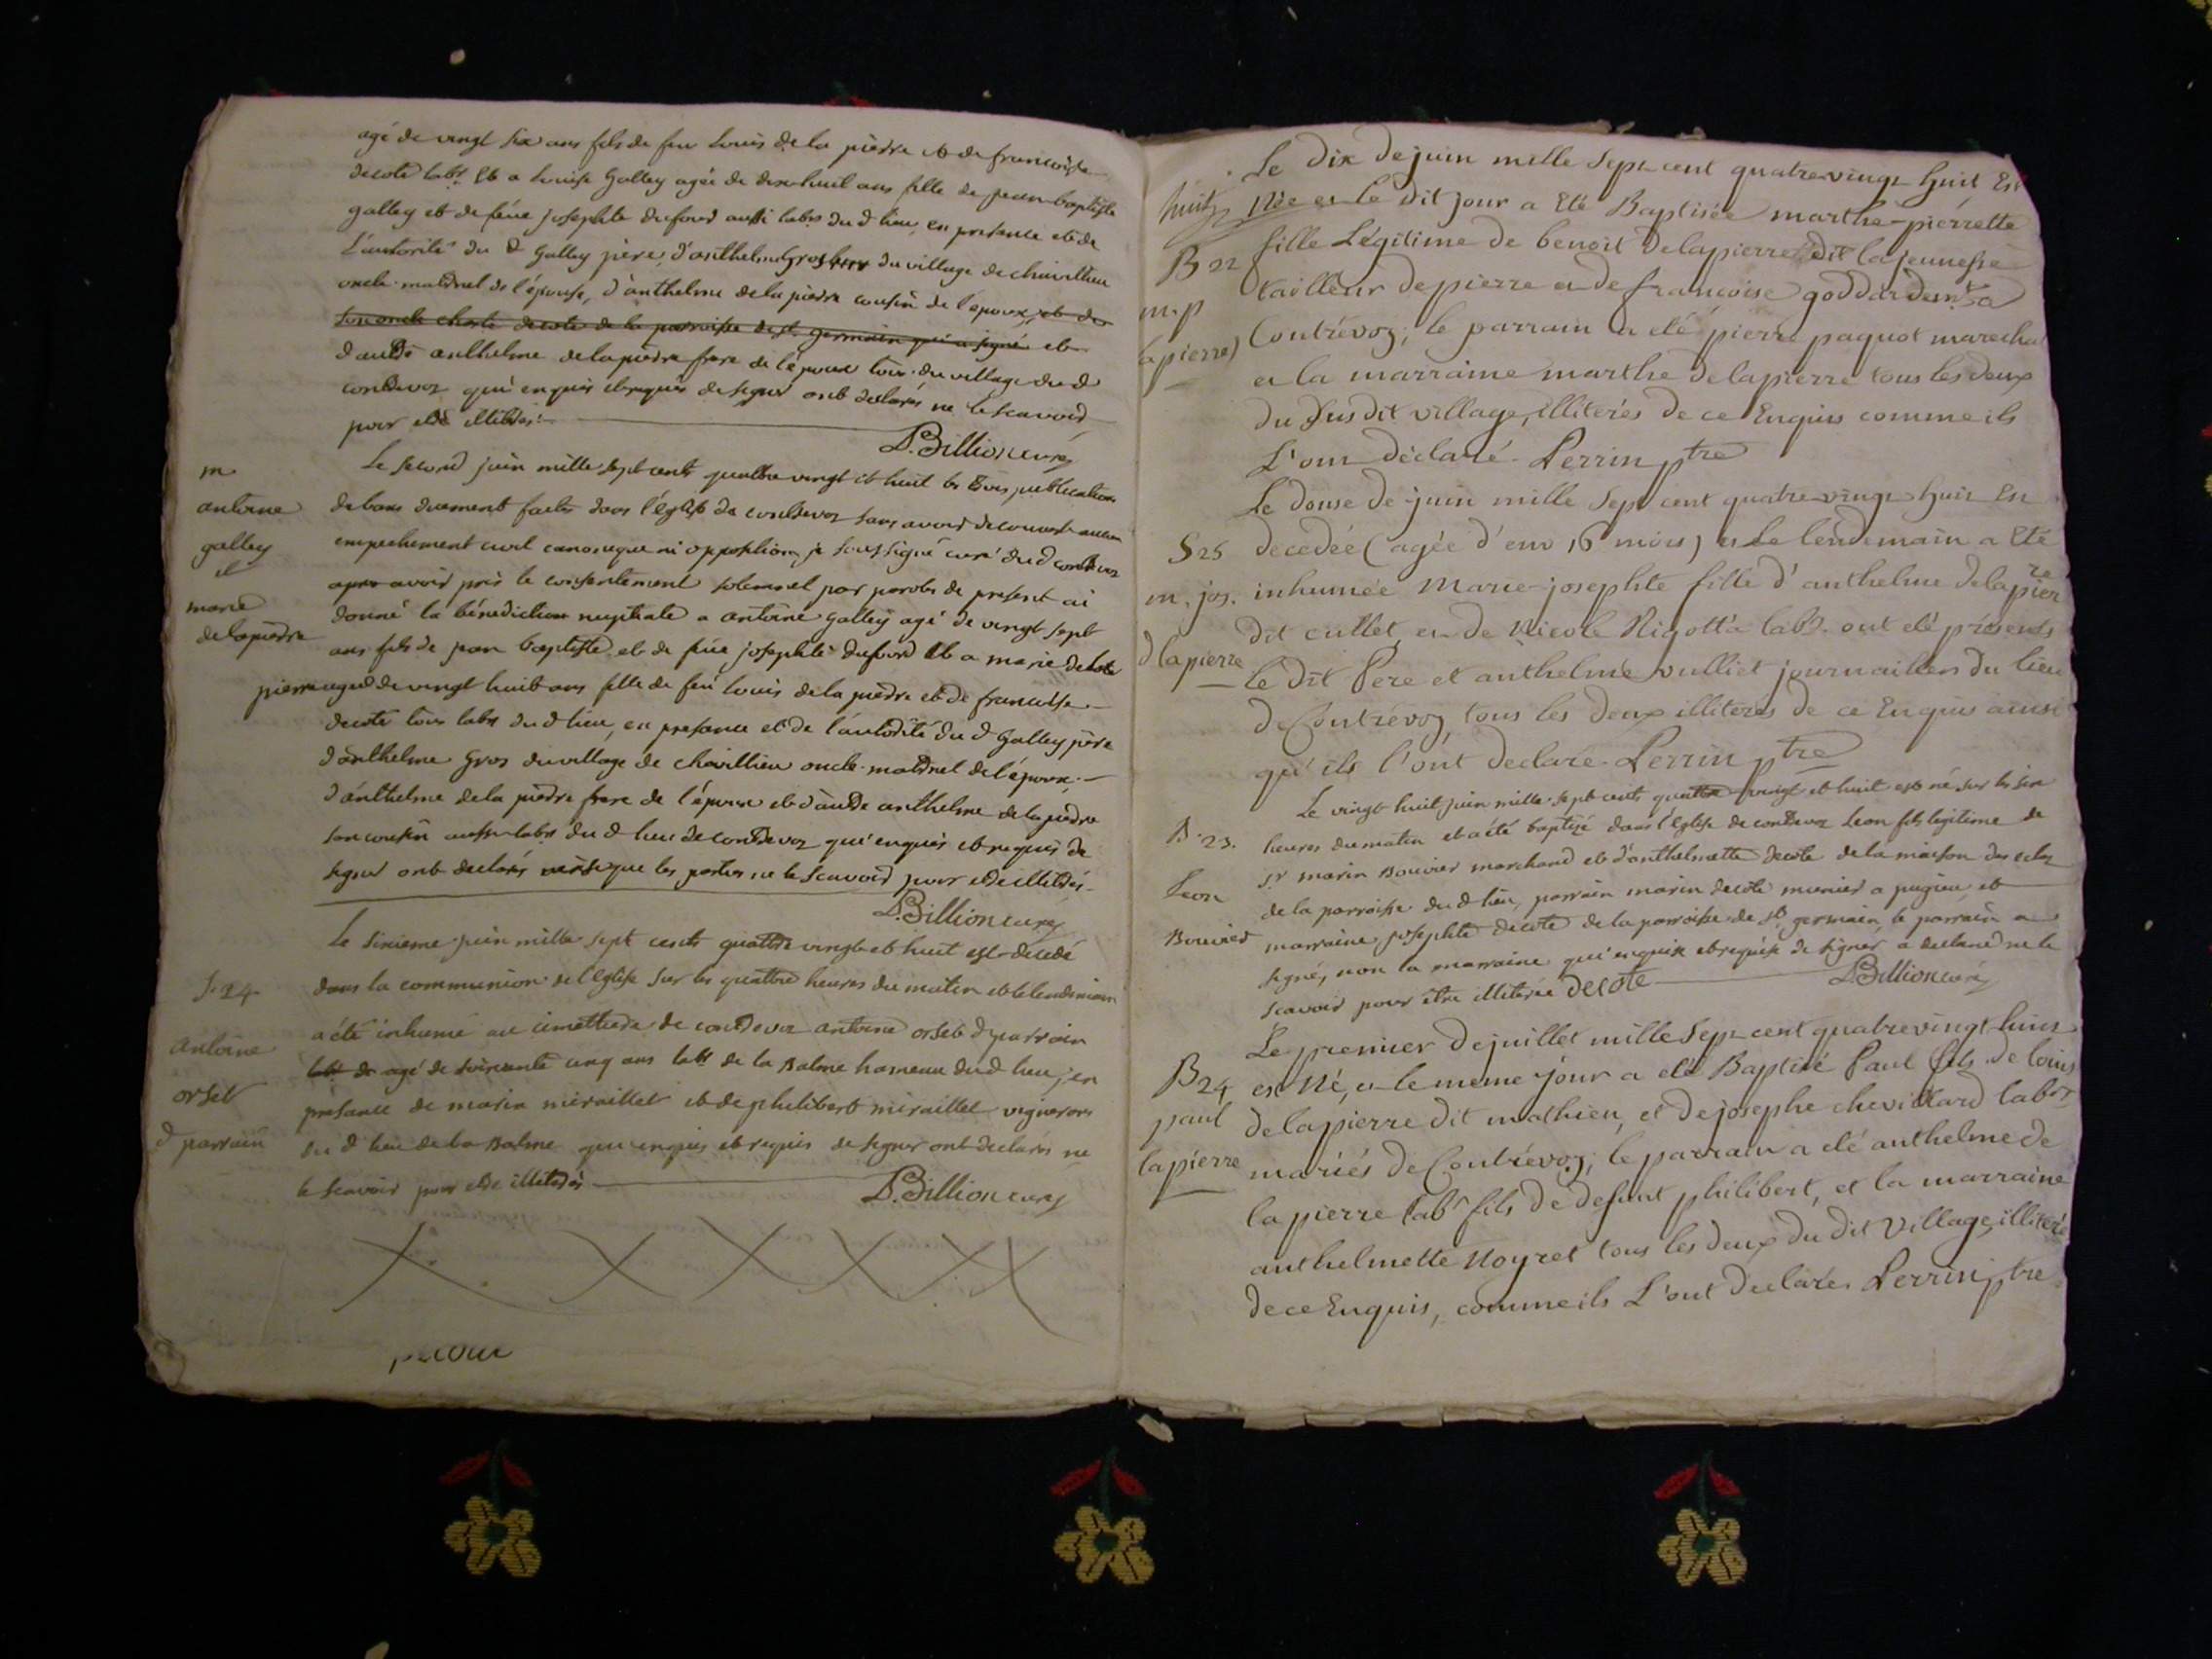 agé de vingt six ans fils de feu Louis de la pierre et de francoise
decote labr. Et a Louise Galley agée de dix-huit ans fille de jean baptiste
galley et de feue josephte dufour aussi labrs du d lieu, en presence et de
l'autorité du d Galley père, d'anthelme Gros du village de chavillieu
oncle maternel de l'épouse, d'anthelme de la pierre cousin de l'époux, et de
son oncle decote de la parroisse de st germain qui a signé et
d'autre anthelme de la pierre frere de l'époux tous du village du d
contrevoz qui enquis et requis de signer ont declarés ne le scavoir
pour etre illiterés.
Billion curé
m
antoine
galley
et
marie
delapierre
Le second juin mille sept cents quattre vingt et huit les trois publications
de bans duement faites dans l'église de contrevoz sans avoir decouvert aucun
empechement civil canonique ni opposition je soussigné curé du d contrevoz
apres avoir pris le consentement solemnel par paroles de present ai
donné la bénediction nuptiale a antoine galley agé de vingt sept
ans fils de jean baptiste et de feüe josephte dufour Et a marie de la
pierre agée de vingt huit ans fille de feu louis de la pierre et de francoise
decote tous labrs du d lieu, en presence et de l'autorité du d Galley père
d'anthelme Gros du village de chavillieu oncle maternel de l'époux
d'anthelme de la pierre frere de l'épouse et d'autre anthelme de la pierre
son cousin aussi labrs du d lieu de contrevoz qui enquis et requis de
signer ont declarés que les parties ne le scavoir pour etre illiterés.
Billion curé
S. 24
antoine
orset
d parrain
Le sixieme juin mille sept cents quattre vingt et huit est decedé
dans la communion de l'église sur les quattre heures du matin et le lendemain
a été inhumé au cimettiere de contrevoz antoine orset d parrain
agé de soixante cinq ans labr de la Balme hameau du d lieu, en
présence de marin miraillet et de philibert miraillet vignerons
du d lieu de la Balme qui enquis et requis de signer ont declarés ne
le scavoir pour etre illiterés
Billion curé
Le dix de juin mille sept cent quatre-vingt huit Est
huit Née et le dit jour a Eté Baptisée marthe-pierrette
B 22
m. p
lapierre
fille Légitime de benoit delapierre dit lajeunesse
tailleur de pierre et de francoise goddard demts a
Contrévoz; le parrain a eté pierre paquot marechal
et la marraine marthe delapierre tous les deux
du susdit village, illiterés de ce Enquis comme ils
L'ont déclaré. Perrin ptre
S 25
m. jos.
d lapierre
Le douse de juin mille Sept cent quatre-vingt huit Est
decedée (agée d'env 16 mois) et Le lendemain a Eté
inhumée Marie-josephte fille d'anthelme delapierre
dit cullet et de Nicole Rigotta labrs. ont eté présents
le dit Pere et anthelme vulliet journailler du lieu
de Contrévoz, tous les deux illiterés de ce Enquis ainsi
qu'ils l'ont declaré. Perrin ptre
B. 23.
Leon
Bouvier
Le vingt huit juin mille sept cents quattre vingt et huit est né sur les six
heures du matin et a été baptizé dans l'église de contrevoz Leon fils légitime de
sr marin Bouvier marchand et d'anthelmette decote de la maison des
de la parroisse du d lieu, parrain marin decote munier a pugieu et
marraine josephte decote de la parroisse de st germain, le parrain a
signé, non la marraine qui enquise et requise de signer, a declaré ne le
scavoir pour être illiterée Decote
Billion curé
B 24
paul
lapierre
Le premier de juillet mille Sept cent quatrevingt huit
est Né, et le meme jour a eté Baptisé Paul fils de louis
delapierre dit mathieu, et de josephe chevillard labrs
mariés de Contrévoz; le parrain a elé anthelme de
la pierre labr fils de defunt philibert, et la marraine
anthelmette Noyret tous les deux du dit village, illiterés
de ce Enquis, comme ils L'ont declarés Perrin ptre